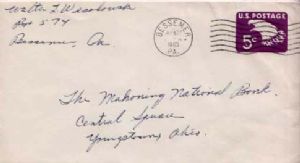 Walter L
Box 574
Bessemer, Pa.
BESSEMER
PA.
U.S. POSTAGE
5c
The Mahoning National Bank.
Central Square
Youngstown, Ohio.